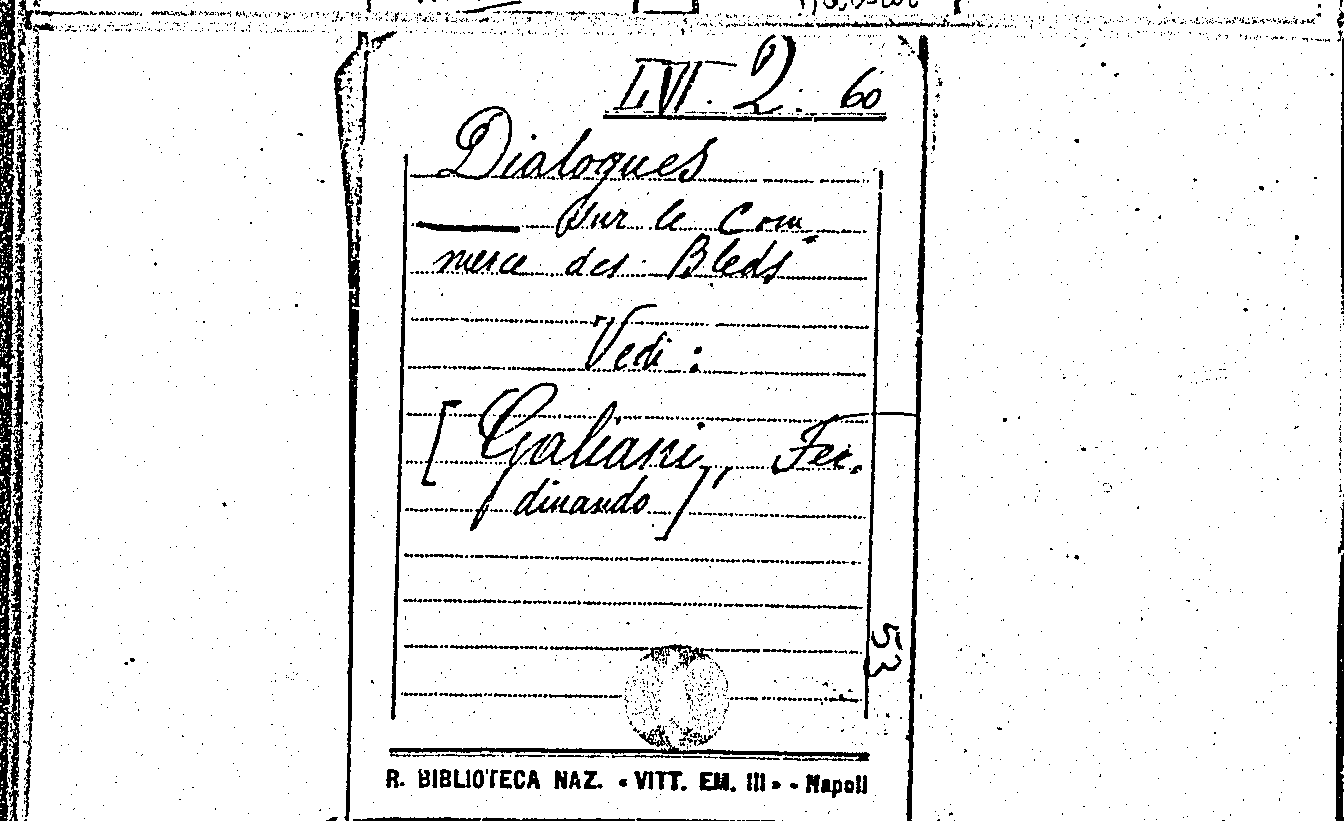 LVI. 2. 60
Dialogues
—— sur le Com-
merce des Bleds
Vedi:
[Galiani, Fer-
dinando]
53
R. BIBLIOTECA NAZ. « VITT. EM. III » - Napoli